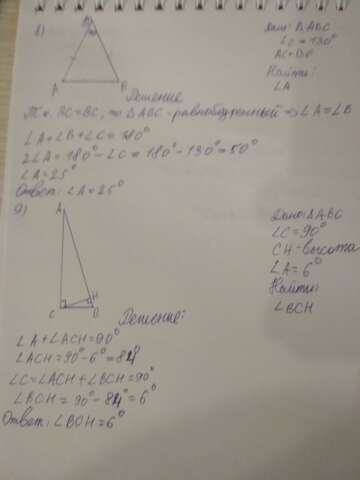 8)
Дано: ΔABC
∠C = 130°
AC = BC
Найти:
∠A
A B
Решение
Т.к. AC=BC, то ΔABC - равнобедренный => ∠A=∠B
∠A+∠B+∠C=180°
2∠A=180°-∠C=180°-130°=50°
∠A=25°
Ответ: ∠A=25°
9)
A
H
C B
Дано: ΔABC
∠C=90°
CH-высота
∠A=6°
Найти:
∠BCH
Решение:
∠A+∠ACH=90°
∠ACH=90°-6°=84°
∠C=∠ACH+∠BCH=90°
∠BCH=90°-84°=6°
Ответ: ∠BCH=6°